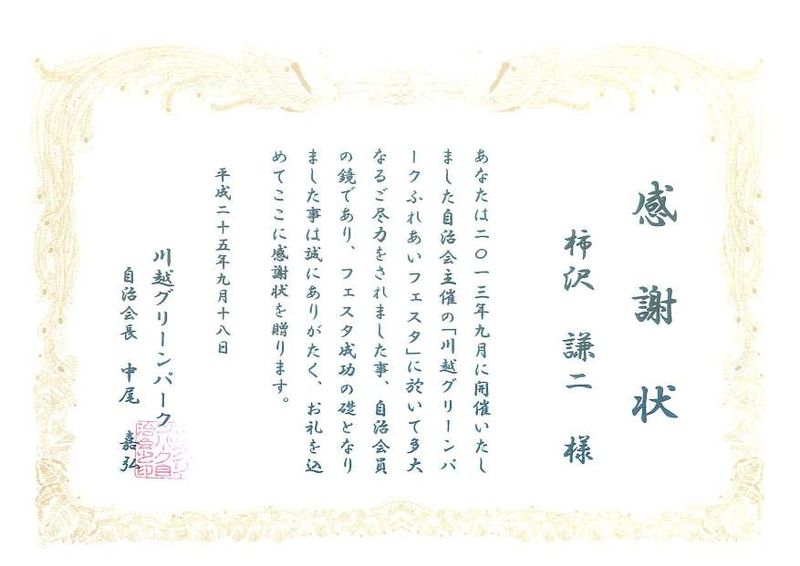 感謝状
柿沢 謙二 様
あなたは二〇一三年九月に開催いたし
ました自治会主催の「川越グリーンパ
ークふれあいフェスタ」に於いて多大
なるご尽力をされました事、自治会員
の鏡であり、フェスタ成功の礎となり
ました事は誠にありがたく、お礼を込
めてここに感謝状を贈ります。
平成二十五年九月十八日
川越グリーンパーク
自治会長 中尾 嘉弘